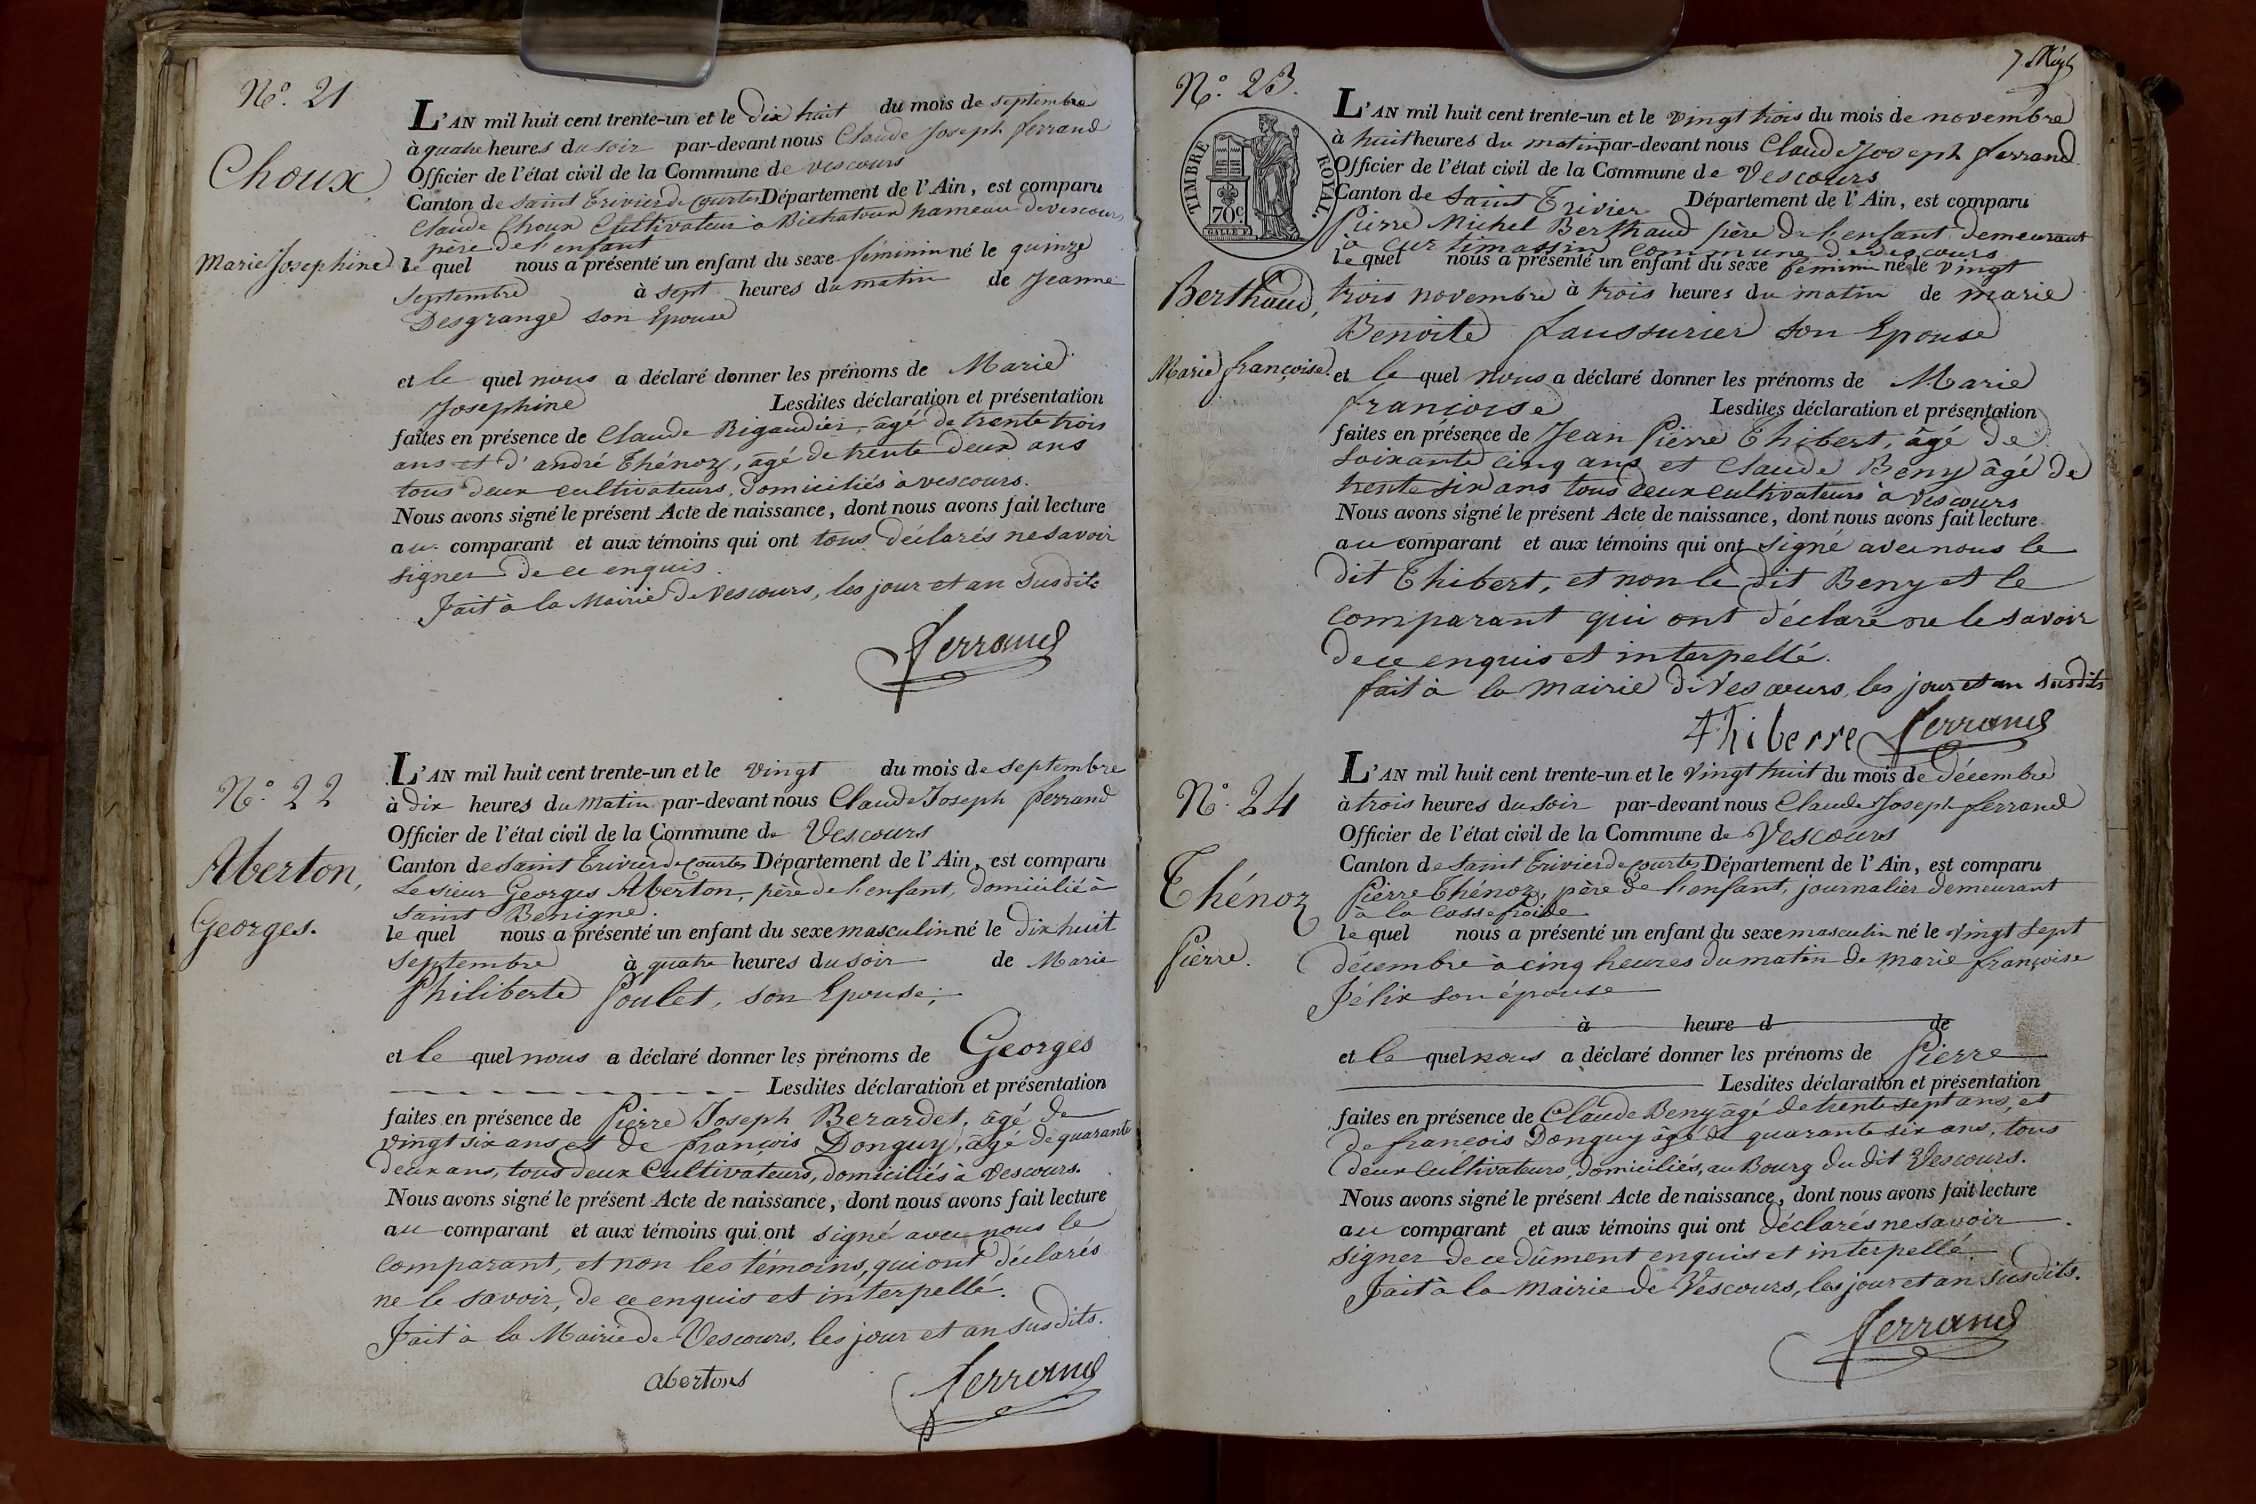 N.º 21
Choux,
Marie Josephine
L'AN mil huit cent trente-un et le dix huit du mois de septembre
à quatre heures du soir par-devant nous Claude Joseph ferrand
Officier de l'état civil de la Commune de vescours
Canton de saint Trivier de Courtes Département de l'Ain, est comparu
Claude Choux Cultivateur à hameau de vescours
père de l'enfant
le quel nous a présenté un enfant du sexe féminin né le quinze
septembre à sept heures du matin de Jeanne
Desgrange son Epouse
et le quel nous a déclaré donner les prénoms de Marie
Josephine Lesdites déclaration et présentation
faites en présence de Claude Rigaudier, âgé de trente trois
ans et d'andré Thénoz, âgé de trente deux ans
tous deux cultivateurs, domiciliés à vescours.
Nous avons signé le présent Acte de naissance, dont nous avons fait lecture
au comparant et aux témoins qui ont tous déclarés ne savoir
signer de ce enquis.
fait à la Mairie de Vescours, les jour et an susdits
ferrand
N.º 22
Aberton,
Georges.
L'AN mil huit cent trente-un et le vingt du mois de septembre
à dix heures du matin par-devant nous Claude Joseph ferrand
Officier de l'état civil de la Commune de Vescours
Canton de saint Trivier de Courtes Département de l'Ain, est comparu
Le sieur Georges Aberton, père de l'enfant, domicilié à
saint Benigne.
le quel nous a présenté un enfant du sexe masculin né le dix huit
septembre à quatre heures du soir de Marie
Philiberte Poulet, son Epouse;
et le quel nous a déclaré donner les prénoms de Georges
Lesdites déclaration et présentation
faites en présence de Pierre Joseph Berardet, âgé de
vingt six ans et de françois Donguy, âgé de quarante
deux ans, tous deux Cultivateurs, domiciliés à Vescours.
Nous avons signé le présent Acte de naissance, dont nous avons fait lecture
au comparant et aux témoins qui ont signé avec nous le
comparant, et non les témoins, qui ont déclarés
ne le savoir, de ce enquis et interpellé.
Fait à la Mairie de Vescours, les jour et an susdits.
abertons ferrand
N.º 23.
TIMBRE ROYAL.
70 c.
Berthaud,
Marie françoise
L'AN mil huit cent trente-un et le vingt trois du mois de novembre
à huit heures du matin par-devant nous Claude Joseph ferrand
Officier de l'état civil de la Commune de Vescours
Canton de saint Trivier Département de l'Ain, est comparu
Pierre Michel Berthaud père de l'enfant demeurant
à curtimassin commune de Vescours
le quel nous a présenté un enfant du sexe féminin né le vingt
trois novembre à trois heures du matin de marie
Benoite faussurier son Epouse
et le quel nous a déclaré donner les prénoms de Marie
françoise Lesdites déclaration et présentation
faites en présence de Jean Pierre Thibert, âgé de
soixante cinq ans et Claude Beny âgé de
trente six ans tous deux cultivateurs à Vescours
Nous avons signé le présent Acte de naissance, dont nous avons fait lecture
au comparant et aux témoins qui ont signé avec nous le
dit Thibert, et non le dit Beny et le
comparant qui ont déclaré ne le savoir
de ce enquis et interpellé.
fait à la mairie de Vescours, les jour et an susdits
Thiberre ferrand
N.º 24
Thénoz
Pierre.
L'AN mil huit cent trente-un et le vingt huit du mois de décembre
à trois heures du soir par-devant nous Claude Joseph ferrand
Officier de l'état civil de la Commune de Vescours
Canton de saint Trivier de courtes Département de l'Ain, est comparu
Pierre Thénoz, père de l'enfant, journalier demeurant
à la casse froide
le quel nous a présenté un enfant du sexe masculin né le vingt sept
décembre à cinq heures du matin de marie françoise
Félix son épouse
à heure d de
et le quel nous a déclaré donner les prénoms de Pierre
Lesdites déclaration et présentation
faites en présence de Claude Beny âgé de trente sept ans, et
de françois Donguy âgé de quarante six ans, tous
deux cultivateurs, domiciliés, au Bourg du dit Vescours.
Nous avons signé le présent Acte de naissance, dont nous avons fait lecture
au comparant et aux témoins qui ont déclarés ne savoir
signer de ce dûment enquis et interpellé.
Fait à la mairie de Vescours, les jour et an susdits.
ferrand